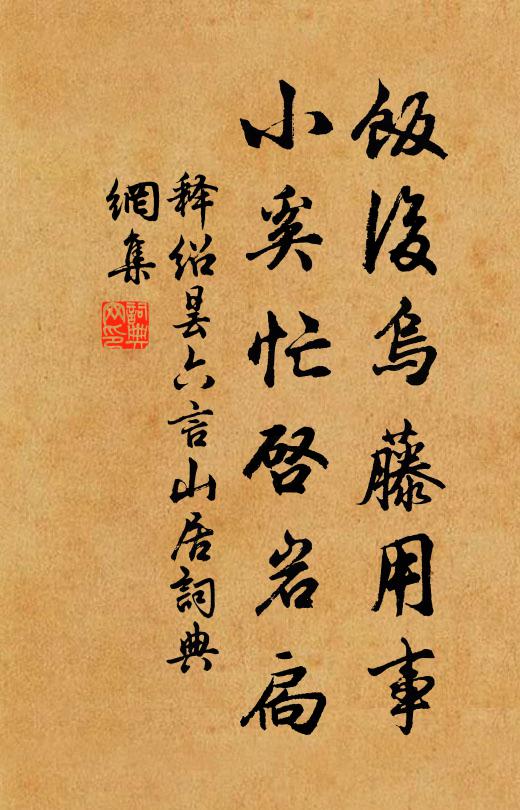 飯後烏藤用事
小奚忙啓岩扃
释绍昙六言山居詞典
網集
詞典